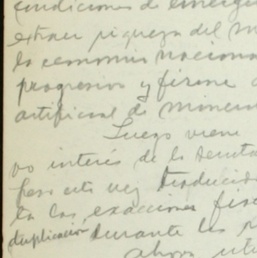 condiciones de emerge
extraer riqueza del m
la economía naciona
progresiva y firme
artificial de minera
Luego viene
vo interés de la Secreta
Pero esta vez traducid
la las exacciones fis
duplicación durante los
ahora